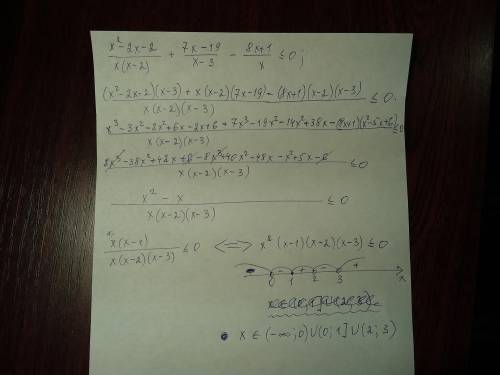 (x²-2x-2)/(x(x-2)) + (7x-19)/(x-3) - (8x+1)/x ≤ 0;
((x²-2x-2)(x-3) + x(x-2)(7x-19) - (8x+1)(x-2)(x-3))/(x(x-2)(x-3)) ≤ 0.
(x³-3x²-2x²+6x-2x+6 + 7x³-19x²-14x²+38x-(8x+1)(x²-5x+6))/(x(x-2)(x-3)) ≤ 0
(8x³-38x²+42x+6-8x³+40x²-48x-x²+5x-6)/(x(x-2)(x-3)) ≤ 0
(x²-x)/(x(x-2)(x-3)) ≤ 0
(x(x-1))/(x(x-2)(x-3)) ≤ 0 <=> x²(x-1)(x-2)(x-3) ≤ 0
- - + - +
0 1 2 3 x
x ∈ (-∞;0)∪(0;1]∪(2;3)